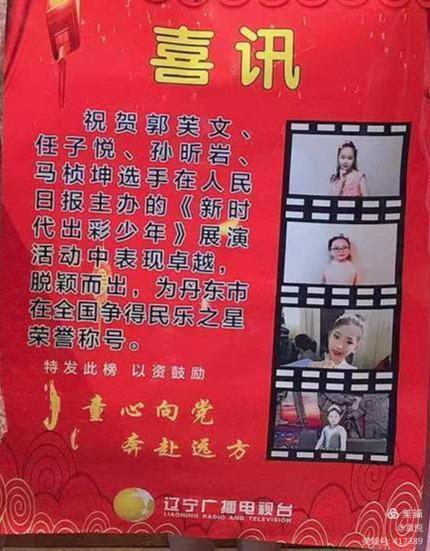 喜讯
祝贺郭芙文、
任子悦、孙昕岩、
马桢坤选手在人民
日报主办的《新时
代出彩少年》展演
活动中表现卓越，
脱颖而出，为丹东市
在全国争得民乐之星
荣誉称号。
特发此榜 以资鼓励
童心向党
奔赴远方
辽宁广播电视台
LIAONING RADIO AND TELEVISION
美篇
美篇号: 417389